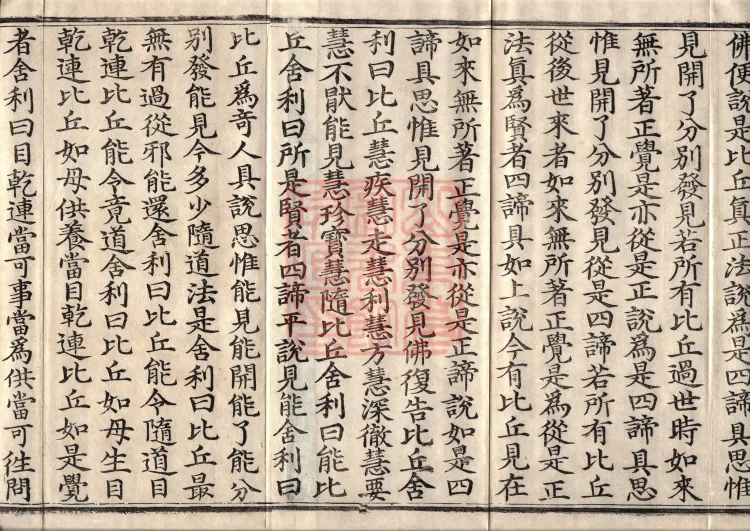 佛便說是比丘真正法說為是四諦具思惟
見開了分別發見若所有比丘過世時如來
無所著正覺是亦從是正說為是四諦具思
惟見開了分別發見從是四諦若所有比丘
從後世來者如來無所著正覺是為從是正
法真為賢者四諦具如上說今有比丘見在
如來無所著正覺是亦從是正諦說如是四
諦具思惟見開了分別發見佛復告比丘舍
利曰比丘慧疾慧走慧利慧方慧深徹慧要
慧不猒能見慧珍寶慧隨比丘舍利曰能比
丘舍利曰所是賢者四諦平說見能舍利曰
比丘為奇人具說思惟能見能開能了能分
別發能見今多少隨道法是舍利曰比丘最
無有過從邪能還舍利曰比丘能令隨道目
乾連比丘能令竟道舍利曰比丘如母生目
乾連比丘如母供養當目乾連比丘如是覺
者舍利曰目乾連當可事當為供當可徃問